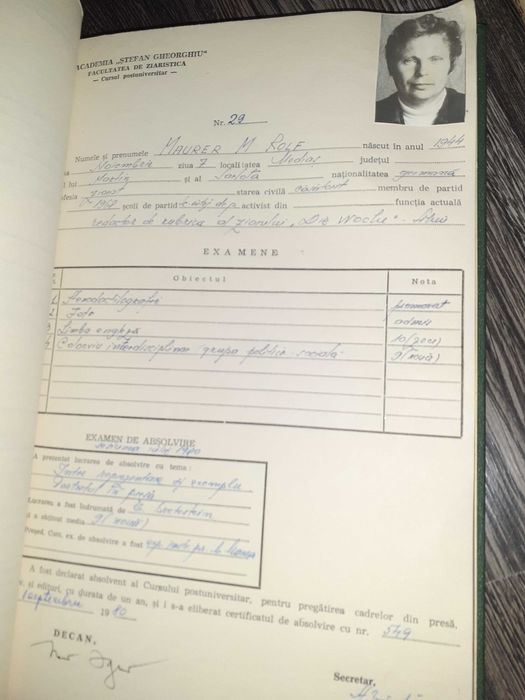 ACADEMIA „STEFAN GHEORGHIU“
FACULTATEA DE ZIARISTICA
— Cursul postuniversitar —
Nr. 29
Numele și prenumele MAURER M ROLF născut în anul 1944
Noiembrie ziua 7 localitatea Mediaș județul
lui Martin și al naționalitatea germană
ziarist starea civilă căsătorit membru de partid
școli de partid activist din funcția actuală
redactor de rubrica al ziarului „Die Woche“ Sibiu
EXAMENE
Obiectul Nota
1 Stenodactilografie promovat
2 Foto admis
3 Limba engleza 10 (zece)
4. Colocviu interdisciplinar grupa politico-sociala 9 (nouă)
EXAMEN DE ABSOLVIRE
1980
A prezentat lucrarea de absolvire cu tema:
Între reprezentare și exemplu
Portretul în presă
Lucrarea a fost îndrumată de
a obținut media 9 (nouă)
Președ. Com. ex. de absolvire a fost
A fost declarat absolvent al Cursului postuniversitar, pentru pregătirea cadrelor din presă,
și edituri, cu durata de un an, și i s-a eliberat certificatul de absolvire cu nr. 549
septembrie 1980
DECAN,
Secretar,